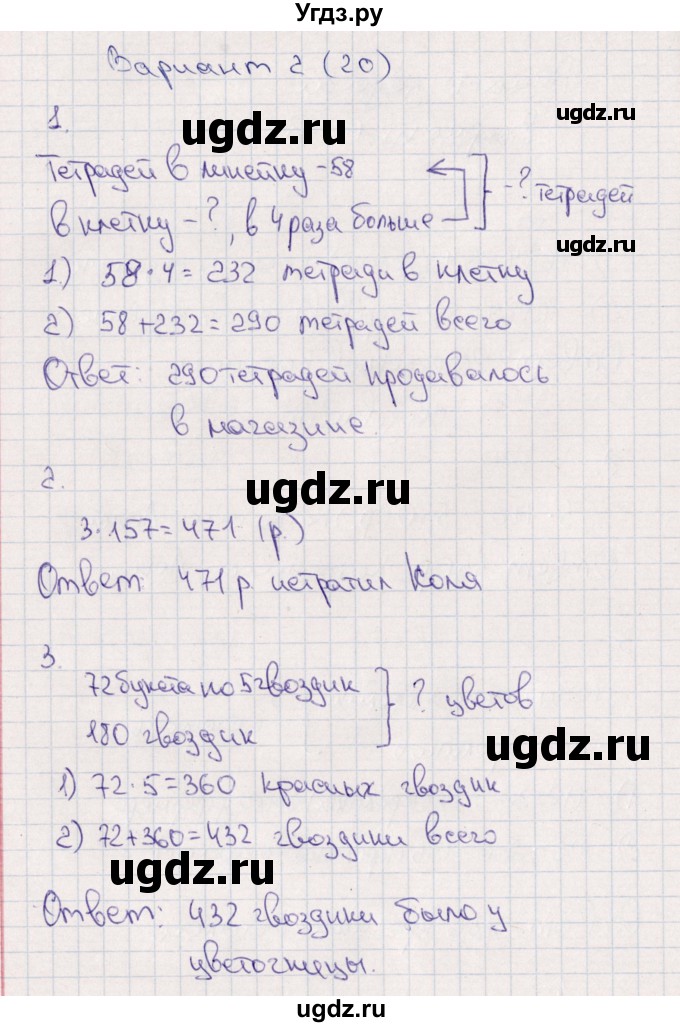 Угдз.ру
Вариант 2 (20)
ugdz.ru
1.
Тетрадей в линейку - 58
в клетку - ?, в 4 раза больше
- ? тетрадей
1) 58 · 4 = 232 тетради в клетку
2) 58 + 232 = 290 тетрадей всего
Ответ: 290 тетрадей продавалось
в магазине.
ugdz.ru
2.
3 · 157 = 471 (р.)
Ответ: 471 р. истратил Коля
ugdz.ru
3.
72 букета по 5 гвоздик
180 гвоздик
? цветов
ugdz.ru
1) 72 · 5 = 360 красных гвоздик
2) 72 + 360 = 432 гвоздики всего
ugdz.ru
Ответ: 432 гвоздики было у
цветочницы.
ugdz.ru